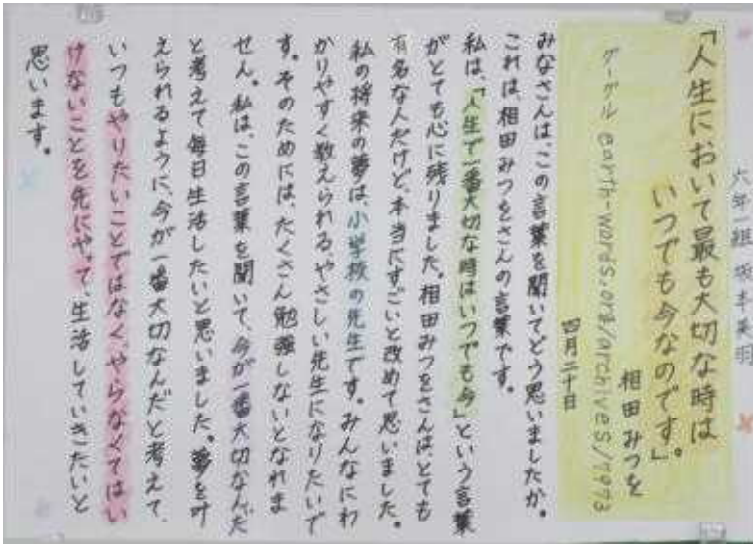 六年一組 坂本美羽
「人生において最も大切な時は
いつでも今なのです」。
相田みつを
グーグル earth-words.org/archives/7973
四月二十日
みなさんは、この言葉を聞いてどう思いましたか。
これは、相田みつをさんの言葉です。
私は、「人生で一番大切な時はいつでも今」という言葉
がとても心に残りました。相田みつをさんはとても
有名な人だけど、本当にすごいと改めて思いました。
私の将来の夢は、小学校の先生です。みんなにわ
かりやすく教えられる、やさしい先生になりたいで
す。そのためには、たくさん勉強しないとなれま
せん。私は、この言葉を聞いて、今が一番大切なんだ
と考えて毎日生活したいと思いました。夢を叶
えられるように、今が一番大切なんだと考えて、
いつもやりたいことではなく、やらなくてはい
けないことを先にやって、生活していきたいと
思います。